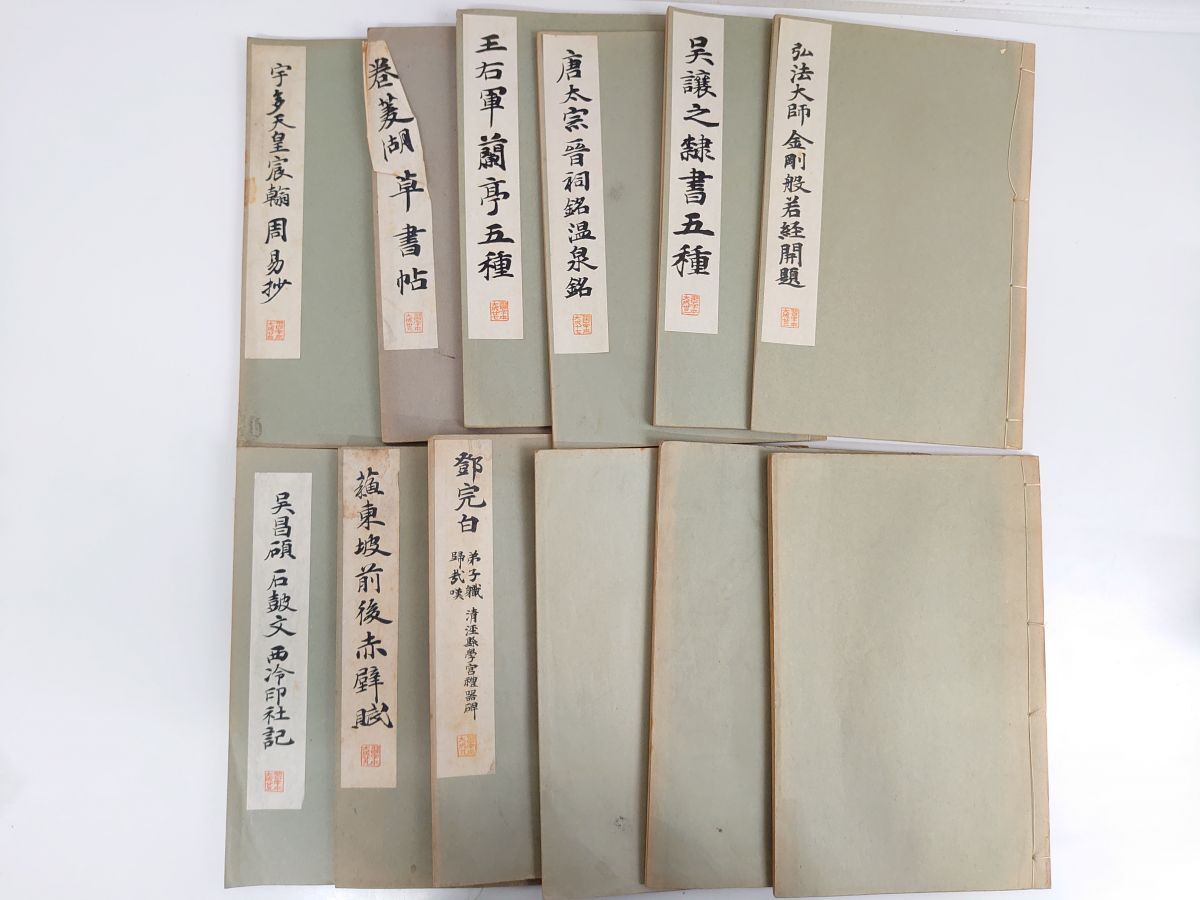 宇多天皇宸翰 周易抄
巻菱湖 草書帖
王右軍 蘭亭五種
唐太宗 晉祠銘 温泉銘
吴讓之 隸書五種
弘法大師 金剛般若経開題
吴昌碩 石鼓文 西冷印社記
蘓東坡 前後赤壁賦
鄧完白
弟子職
歸武嘆
清涇縣學宮禮器碑